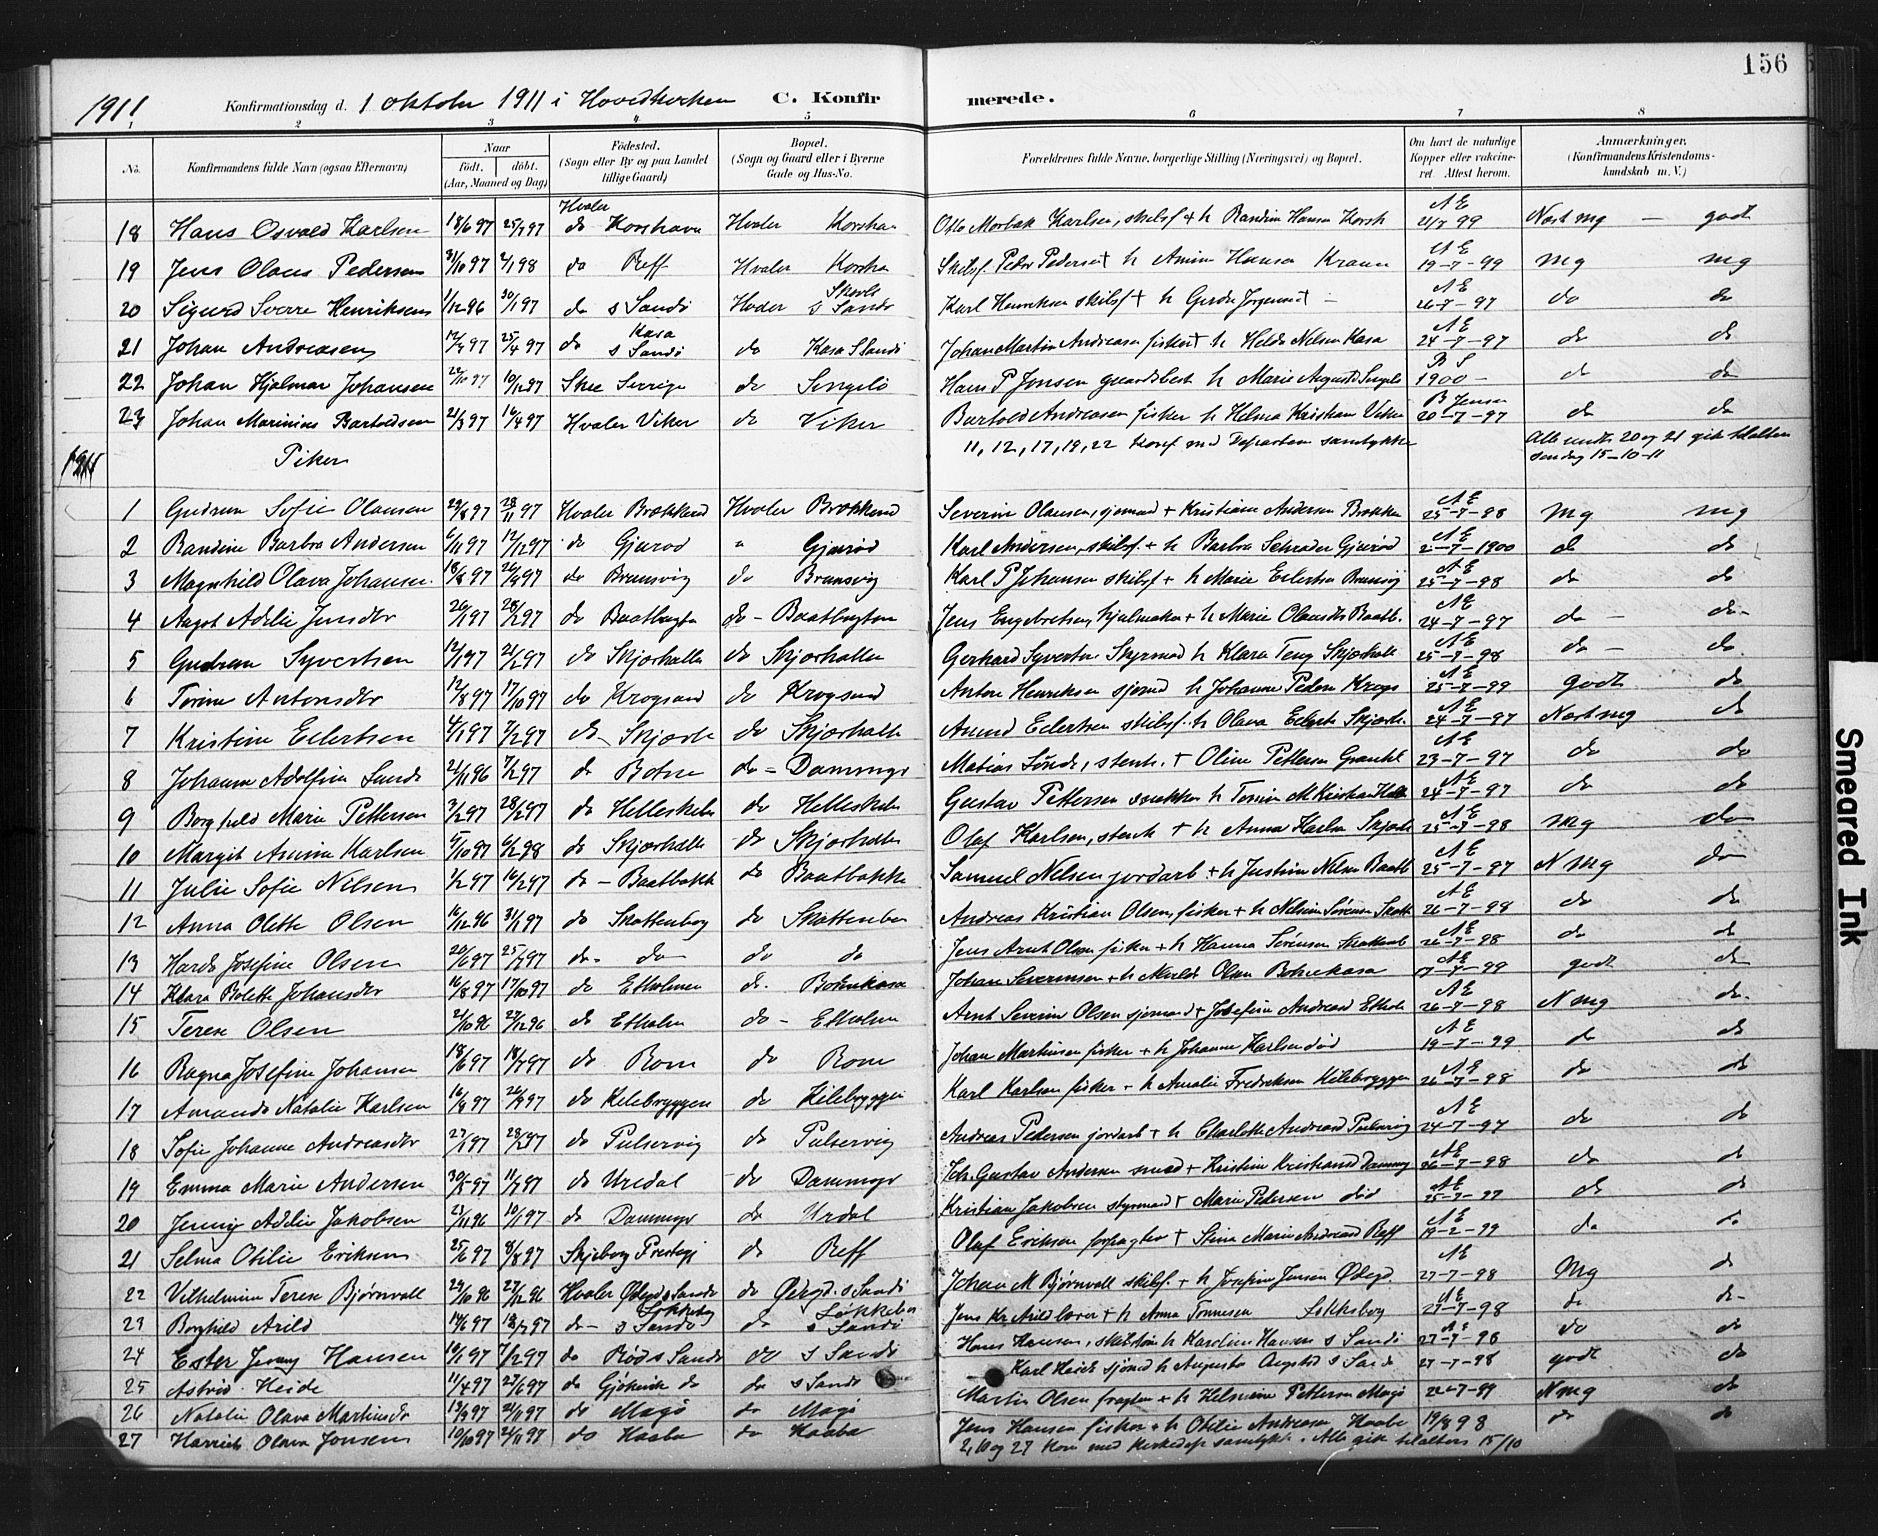 156
1911 Konfirmationsdag d. 1 oktober 1911 i Hovedkirken C. Konfirmerede.
1 2 3 4 5 6 7 8
No. Konfirmandens fulde Navn (ogsaa Efternavn) Naar født. døbt. (Aar, Maaned og Dag) Fødested. (Sogn eller By og paa Landet tillige Gaard) Bopæl. (Sogn og Gaard eller i Byerne Gade og Hus-No. Forældrenes fulde Navne, borgerlige Stilling (Næringsvei) og Bopæl. Om havt de naturlige Kopper eller vaccineret. Attest herom. Anmærkninger. (Konfirmandens Kristendomskundskab m. V.)
18 Hans Osvald Karlsen 18/6 97 25/7 97 Hvaler do Korshavn Hvaler Korshavn Karlsen, skilsf + h Randine Hansen Korsh AE 21/7 99 godt
19 Jens Olaus Pedersen 31/10 97 2/1 98 do Reff Hvaler Korsha Skilsf. Peder Pedersen + h Hansen AE 19-7-99 Mg mg
20 Sigurd Sverre Henriksen 1/12 96 30/1 97 do s Sandø Hvaler s Sandø Karl Henriksen skilsf + h AE 26-7-97 do do
21 Johan Andreasen 25/4 97 do Kasa s Sandø do Kasa S Sandø Johan Martin Andreasen fisker + h Nilsen Kasa AE 24-7-97 do do
22 Johan Hjalmar Johansen 22/10 97 10/12 97 Skee Sverige do Singelø Hans P Jonsen gaardbest h Marie 1900 - do do
23 Johan Marinius Bartoldsen 21/3 97 16/4 97 Hvaler Viker do Viker Bartold Andreasen fisker h Helma Kristians Viker B Jensen 20-7-97 do do
11, 12, 17, 19, 22 konf med Departem samtykke Alle undt. 20 og 21 gik tilalters søndag 15-10-11
1911 Piker
1 Gudrun Sofie Olausen 29/8 97 28/11 97 Hvaler Brækkerød Hvaler Brækkerød Severin Olausen, sjømand + Kristiane Andersen AE 25-7-98 Mg mg
2 Randine Barbra Andersen 6/11 97 12/12 97 do Gjurød " Gjurød Karl Andersen, skilsf. + h Barbra Schrader Gjurød AE 2-7-1900 do do
3 Magnhild Olava Johansen 18/8 97 26/9 97 do Brunsvig do Brunsvig Karl P Johansen skilsf + h Marie Eilertsen AE 25-7-98 do do
4 Aagot Adelie Jensdtr 26/1 97 28/2 97 do Baatbugta do - Baatbugten Jens Engebretsen, + h Marie Olausdtr Baatb. AE 24-7-97 do - do -
5 Gudrun Syvertsen 12/1 97 21/2 97 do Skjærhalla do Skjærhallen Gerhard Syvertsen h Klara Skjærhall AE 25-7-98 do - do
6 Torine Antonsdtr 12/8 97 17/10 97 do Krogsund do Krogsund Anton Henriksen sjømd h Johanne Peders Krogs AE 25-7-99 godt do
7 Kristine Eilertsen 4/1 97 7/2 97 do Skjærh do Skjærhalla Amund Eilertsen skilsf. h Olava Skjærh. AE 24-7-97 do
8 Johanne Adolfine Sunde 21/11 96 7/2 97 do Botne do - Dammyr Matias Sunde, stenh. + Oline Pettersen AE 23-7-97 do do
9 Borghild Marie Pettersen 3/1 97 28/2 97 do Helleskilen do Helleskilen Gustav Pettersen snekker h AE 24-7-97 do do
10 Margit Amina Karlsen 5/10 97 6/2 98 do Skjærhalla do Skjærhalla Olaf Karlsen, stenh + h Anna Karlsen Skjærh AE 25-7-98 mg do
11 Julie Sofie Nilsen 1/2 97 16/2 97 do - Baatbakk do Baatbakke Samuel Nilsen jordarb + h Justine Nilsen Baatb AE 25-7-97 N mg do
12 Anna Olette Olsen 16/12 96 31/1 97 do Skattenborg do Skattenbor Andreas Kristian Olsen, fisker + h Nilsine Sørensen Skatt AE 26-7-98 do do
13 Harda Josefine Olsen 20/6 97 25/7 97 do do do do Jens Arnt Olsen fisker + h Hanna Sørensen AE 26-7-98 do do
14 Klara Bolette Johansdtr 16/8 97 17/10 97 do Etholmen do Botnekasa Johan Severinsen + h Olsen Botnekasa AE 17-7-99 godt do
15 Terese Olsen 2/10 96 27/12 96 do Etholm do - Etholm Arnt Severin Olsen sjømand + Josefine Andreasd Etholm AE 26-7-98 N mg do
16 Ragna Josefine Johansen 18/6 97 18/7 97 do Rom do Rom Johan Martinsen fisker + h Johanne Karlsen død AE 19-7-99 do do
17 Amanda Natalie Karlsen 16/8 97 26/9 97 do Kilebryggen do Kilebryggen Karl Karlsen fisker + h Amalie Fredriksen Kilebryggen AE 26-7-98 do do
18 Sofie Johanne Andreasdtr 27/1 97 28/2 97 do Pulservig do Pulservig Andreas Pedersen jordarb + h Charlotte Andreasd Pulservig AE 24-7-97 do do
19 Emma Marie Andersen 30/5 97 11/7 97 do Urdal do Dammyr Joh. Gustav Andersen smed + Kristine Kristiansd Dammyr AE 26-7-98 do do
20 Jenny Adelie Jakobsen 23/11 96 10/1 97 do Dammyr do Urdal Kristian Jakobsen styrmand + Marie Pedersen død AE do do
21 Selma Otilie Eriksen 25/6 97 8/8 97 Skjeberg Prestegj do Reff Olaf Eriksen forpagter + Stine Marie Andreasd Reff AE 19-2-99 do do
22 Vilhelmine Terese Bjørnvall 24/10 96 27/12 96 Hvaler Ødegd s Sandø do Ødegd. s Sandø Johan M Bjørnvall skilsf. + h Josefine Jensen Ødegd. AE 27-7-98 Mg do
23 Borghild Arild 14/6 97 18/7 97 do - Løkkeberg s Sandø do Løkkeber s Sandø Jens Kr Arild lærer + h Anna Tonnesen Løkkeberg AE 27-7-98 do do
24 Ester Jenny Hansen 10/1 97 7/2 97 do Rød s Sandø do s Sandø Hans Hansen, h Karoline Hansen s Sandø AE 27-7-98 do do
25 Astrid Heide 11/4 97 27/6 97 do Gjøkvik do do s Sandø Karl Heide sjømd h Augusta Augstsd s Sandø 27-7-98 godt do
26 Natalie Olava Martinsdtr 13/9 97 21/11 97 do Magø do Magø Martin Olsen + h Pettersen Magø 22-7-99 N mg do
27 Harriet Olava Jensen 10/10 97 21/11 97 do Haaba do Haaba Jens Hansen fisker + h Otilie Andreasen Haabe 19/8 98 do do
2, 10 og 27 kon med kirkedep samtykke. Alle gik tilalters 15/10
Smeared Ink